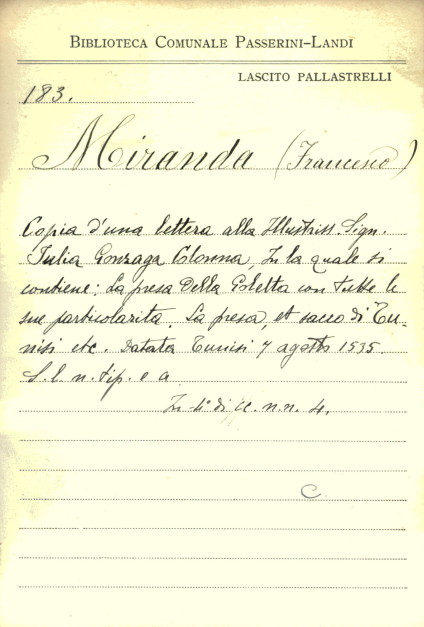 BIBLIOTECA COMUNALE PASSERINI-LANDI
LASCITO PALLASTRELLI
183.
Miranda (Francesco)
Copia d'una lettera alla Illustriss. Sign.
Iulia Gonzaga Colonna, In la quale si
contiene: La presa Della Goletta con tutte le
sue particolarita. La presa, et sacco di Tu-
nisi etc. Datata Tunisi 7 agosto 1535.
S. l. n. tip. e a
In 4° di cc. n.n. 4.
C